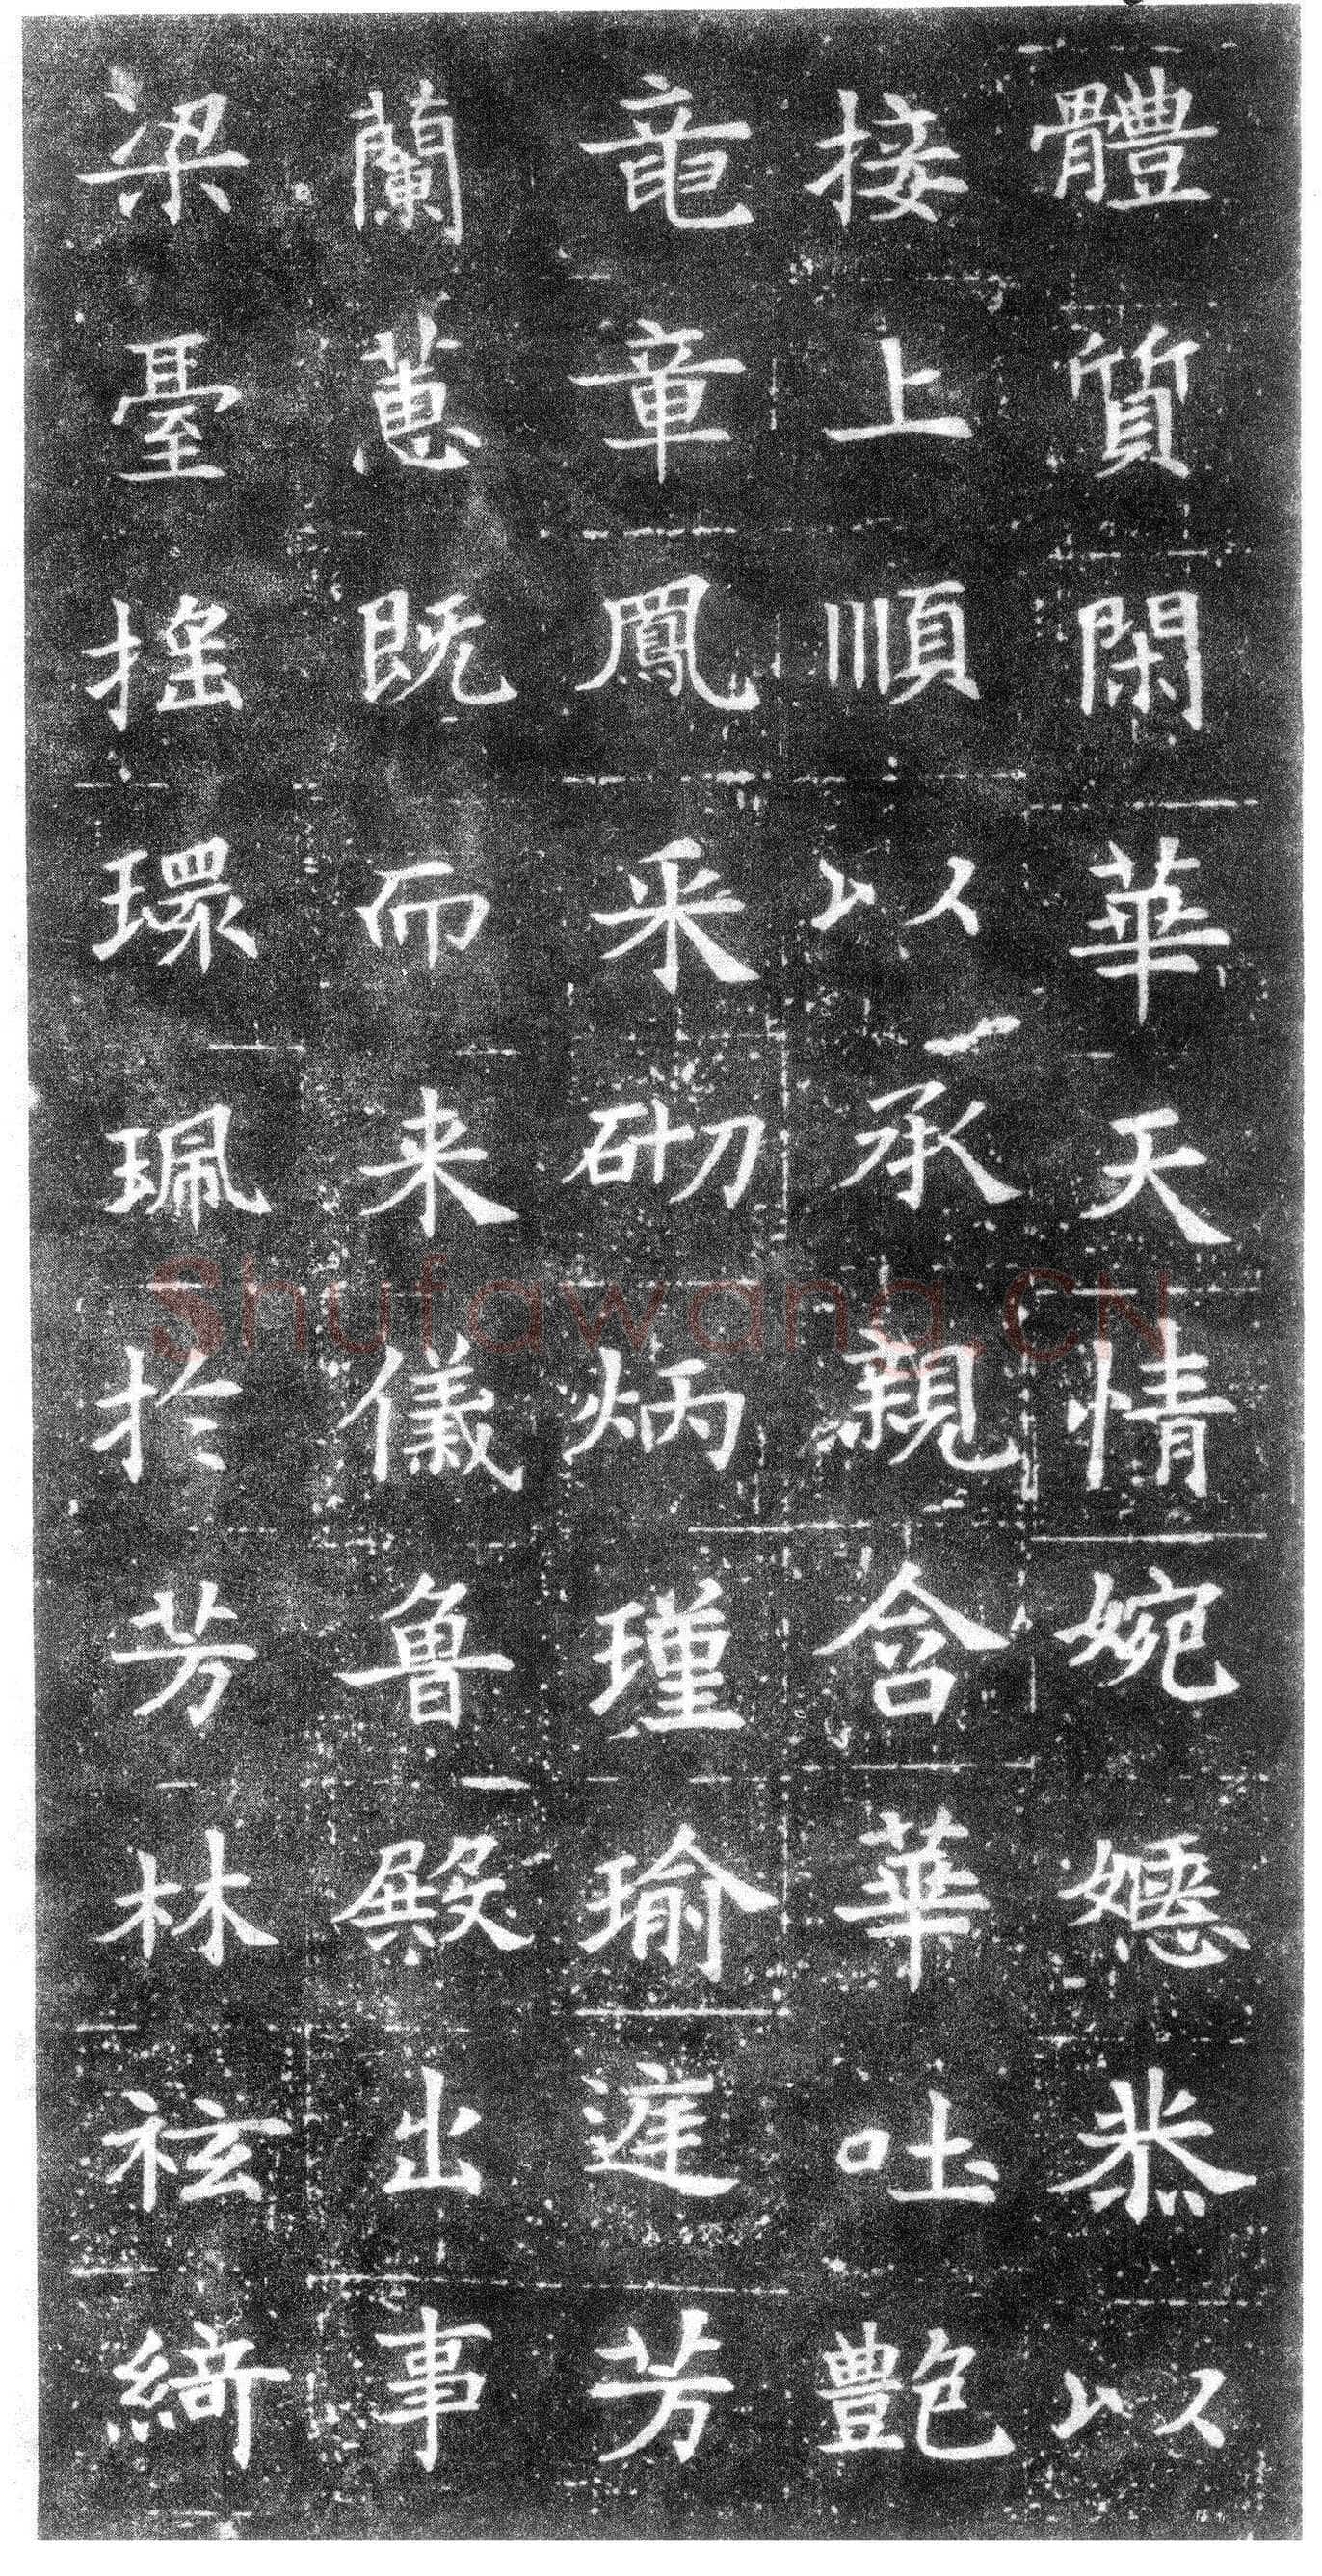 體質閑華天情婉嫕恭以
接上順以承親含華吐艷
竜章鳳采砌炳瑾瑜遳芳
蘭蕙既而来儀魯殿出事
梁臺搖環珮於芳林袨綺
Shufawang.CN